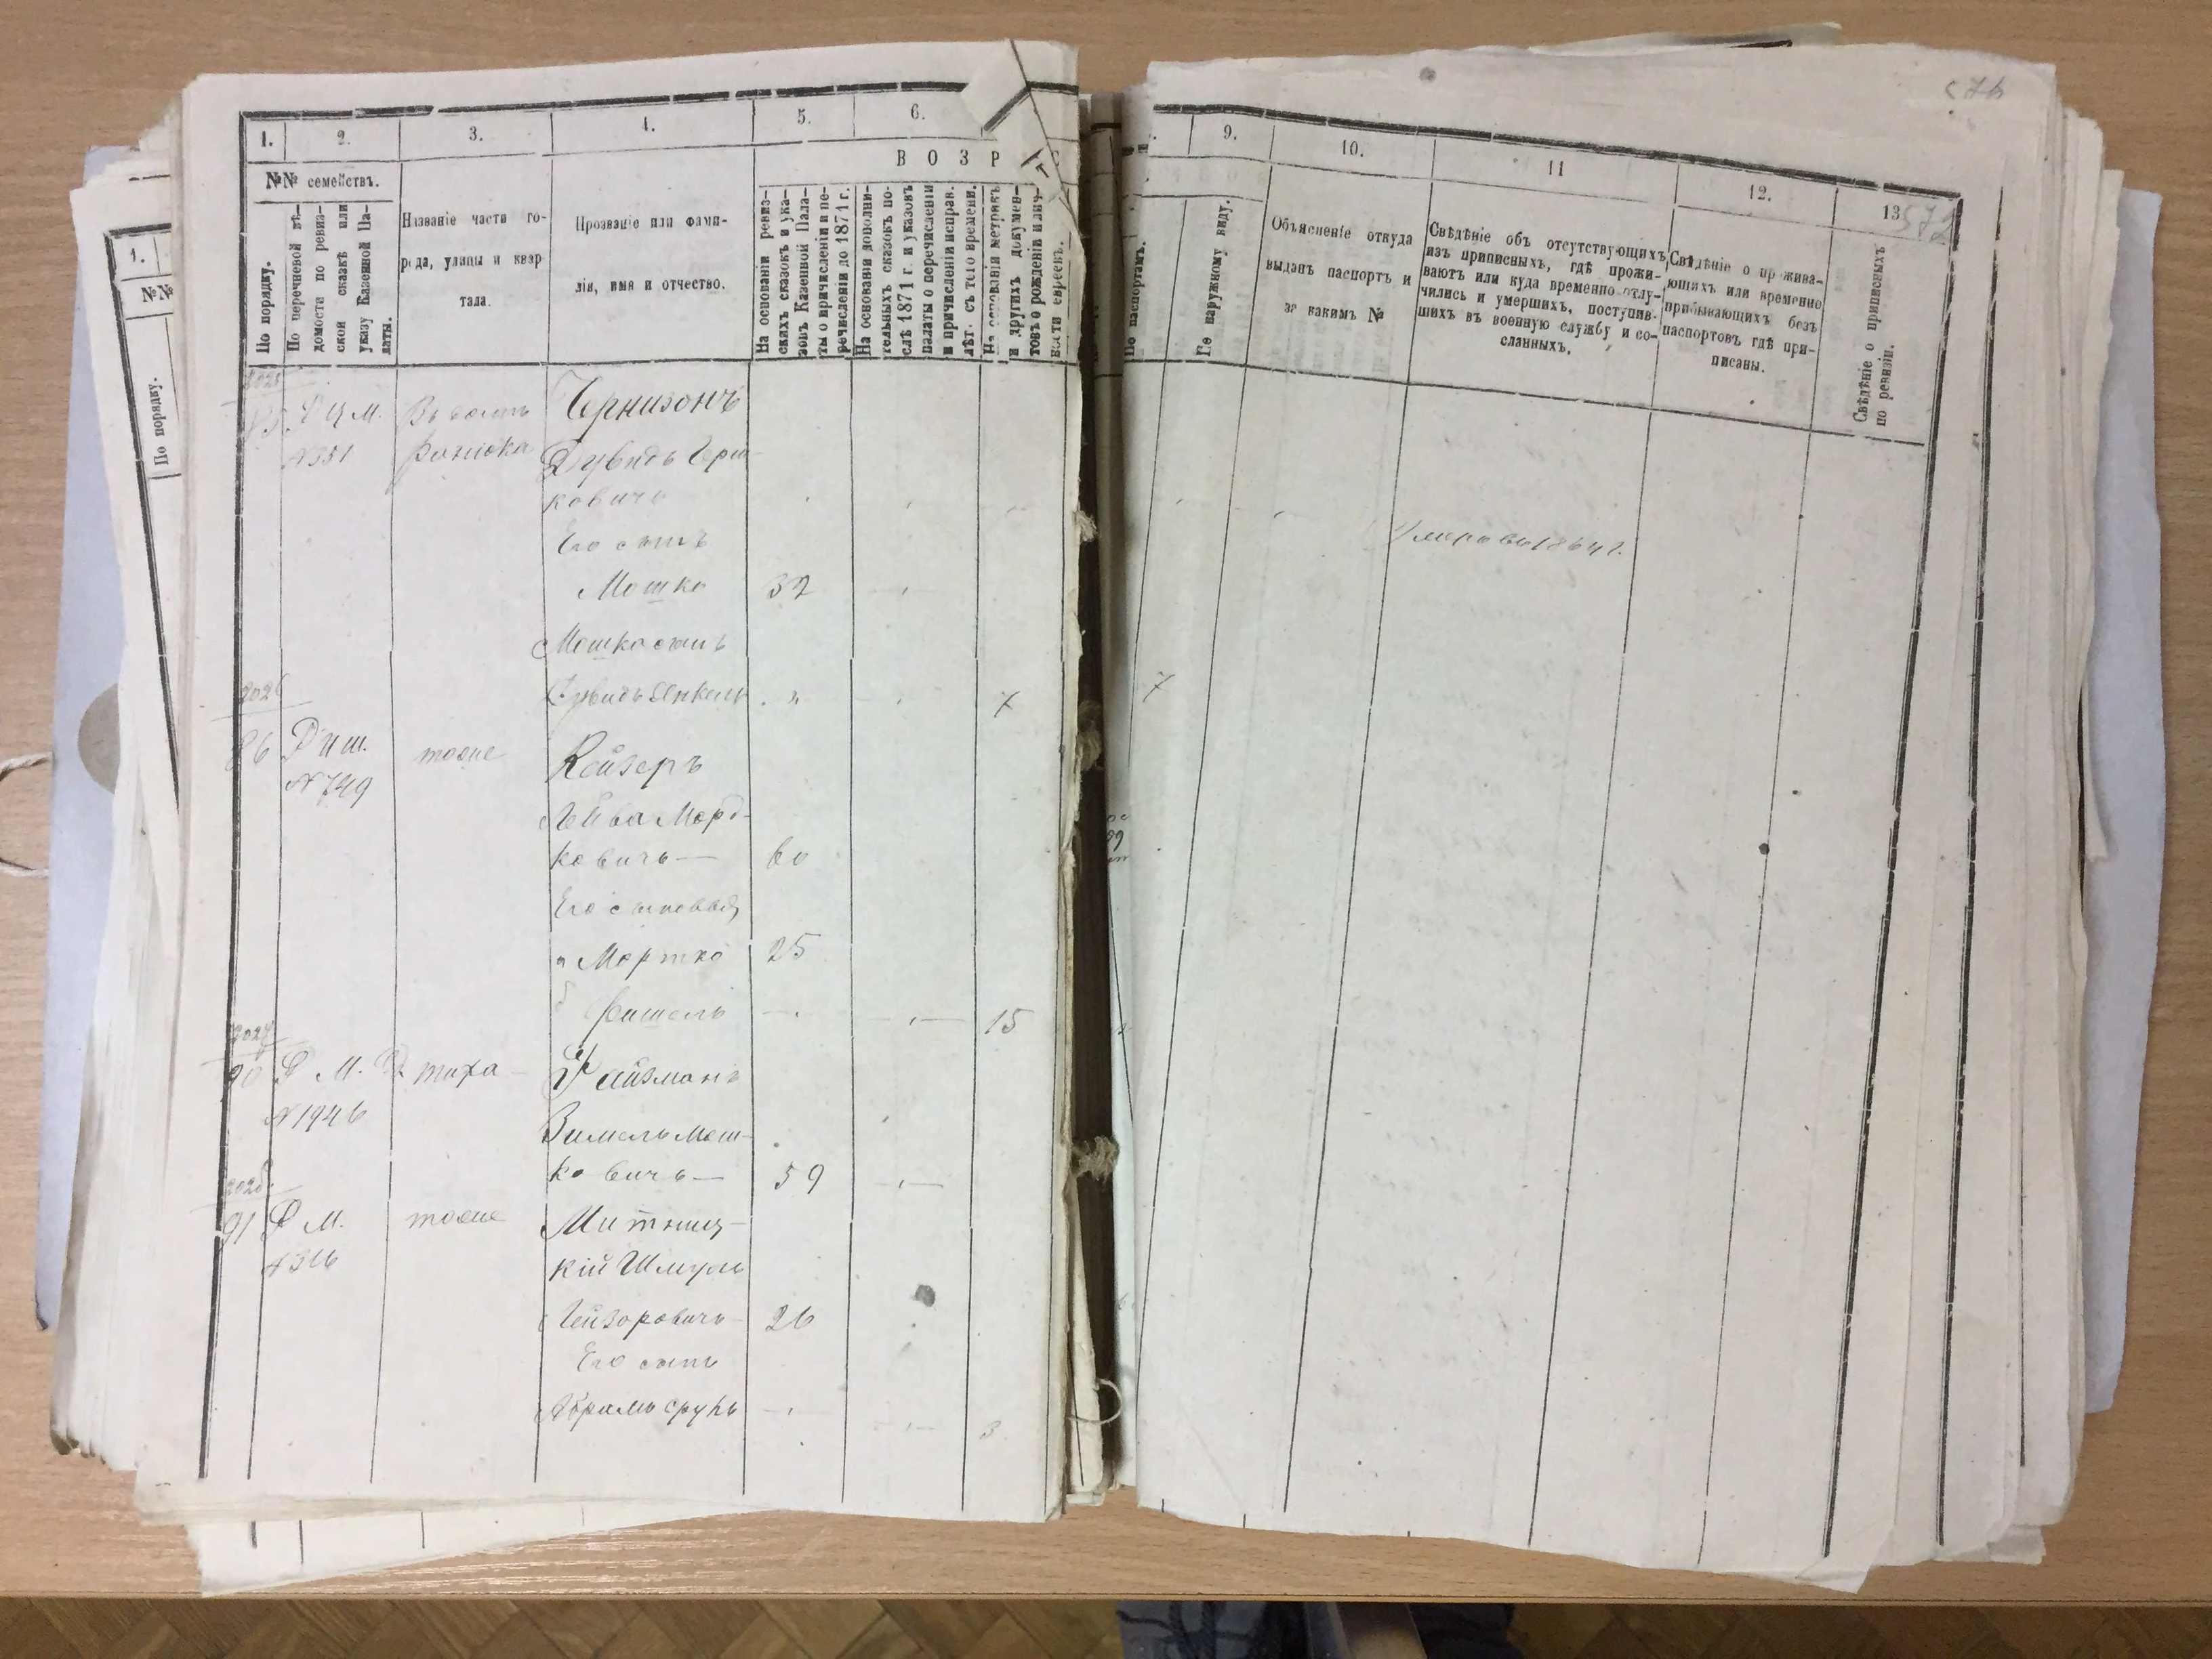 1.
2.
3.
4.
5.
6.
В О З Р
№№ семействъ.
По порядку.
По перечневой вѣ-
домости по ревиз-
ской сказкѣ или
указу Казенной Па-
латы.
Названіе части го-
рода, улицы и квар
тала.
Прозваніе или фами-
лія, имя и отчество.
На основаніи ревиз-
скихъ сказокъ и ука-
зовъ Казенной Пала-
ты о причисленіи и пе-
речисленіи до 1871 г.
На основаніи дополни-
тельныхъ сказокъ по-
слѣ 1871 г. и указовъ
палаты о перечисленіи
и причисленіи исправ.
лѣт. съ того времени.
На основаніи метрикъ
и другихъ докумен-
товъ о рожденіи и лич-
ности евреевъ.
2025
85
№ 351
Чернизонъ
Дувидъ Герш-
ковичъ
Его сынъ
Мошко 32
Мошка сынъ
7
2026
86
№ 749
тоже
Кейзеръ
Лейба Морд-
ковичъ — 60
Его сыновья
а Мортко 25
б Фишель 15
2027
90
№ 1946
Вайзманъ
Зимель Мош-
ковичъ — 59
91
М.
№ 316
тоже
Митниц-
кій Шмуль
Лейзоровичъ 26
Его сынъ
Абрамъ Сруль 3
9.
10.
11
12.
13
572
По паспортамъ.
По наружному виду.
Объясненіе откуда
выданъ паспортъ и
за какимъ №
Свѣдѣніе объ отсутствующихъ
изъ приписныхъ, гдѣ прожи-
ваютъ или куда временно отлу-
чились и умершихъ, поступив-
шихъ въ военную службу и со-
сланныхъ.
Свѣдѣніе о прожива-
ющихъ или временно
прибывающихъ безъ
паспортовъ гдѣ при-
писаны.
Свѣдѣніе о приписныхъ
по ревизіи.
Умеръ въ 1864 г.
7
1.
№№
По порядку.